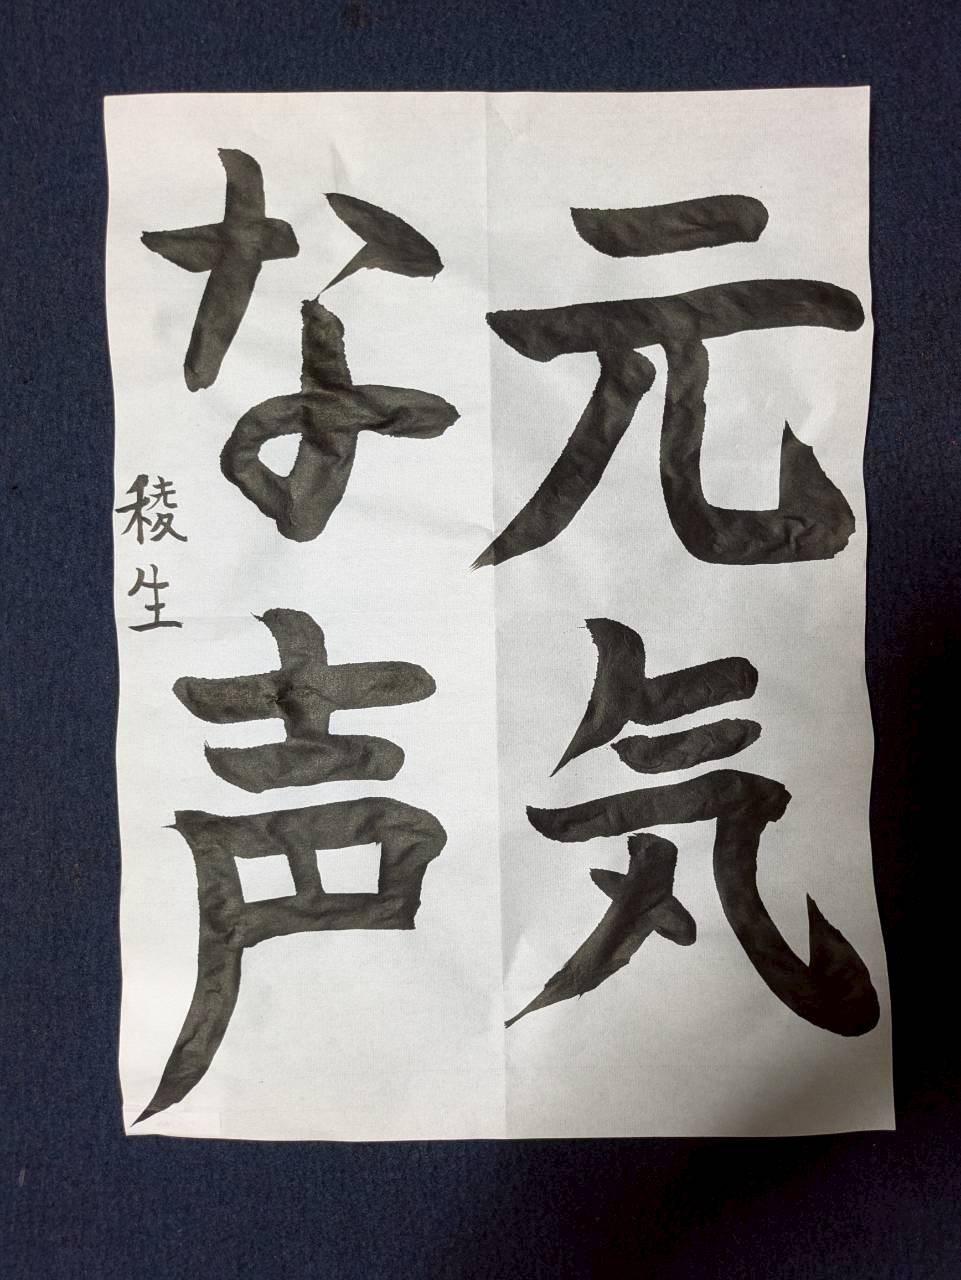 元気
な声
稜生